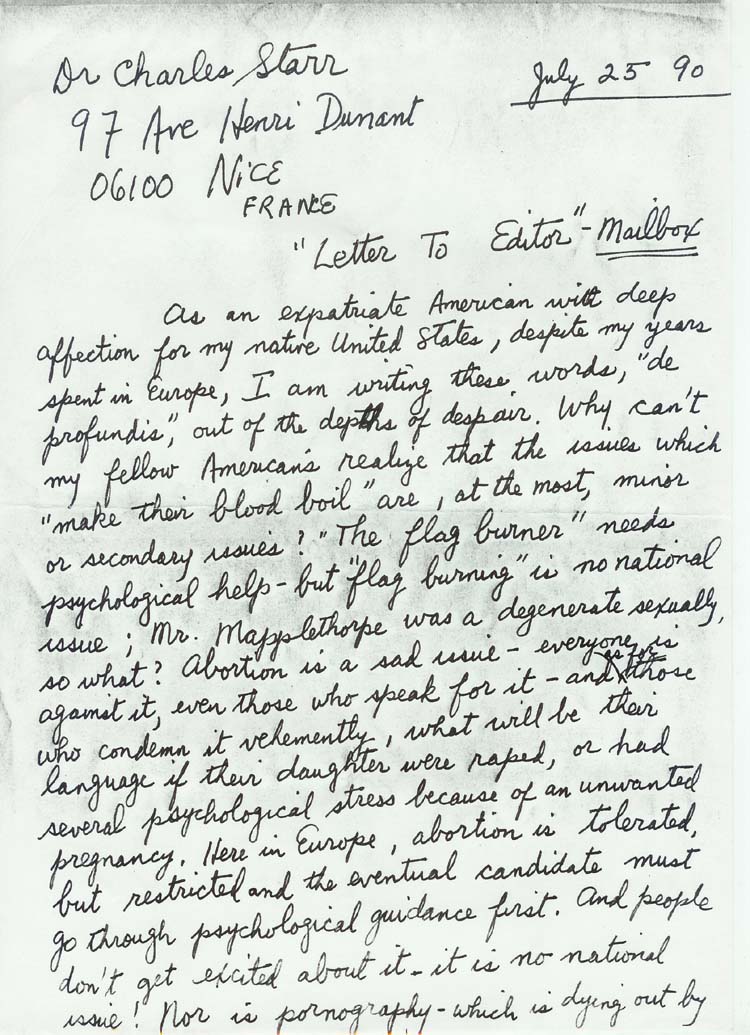 Dr Charles Starr
July 25 90
97 Ave Henri Dunant
06100 Nice
FRANCE
"Letter To Editor" - Mailbox
As an expatriate American with deep
affection for my native United States, despite my years
spent in Europe, I am writing these words, "de
profundis", out of the depths of despair. Why can't
my fellow Americans realize that the issues which
"make their blood boil" are, at the most, minor
or secondary issues? "The flag burner" needs
psychological help - but "flag burning" is no national
issue; Mr. Mapplethorpe was a degenerate sexually,
so what? Abortion is a sad issue - everyone is
against it, even those who speak for it - and as for those
who condemn it vehemently, what will be their
language if their daughter were raped, or had
several psychological stress because of an unwanted
pregnancy. Here in Europe, abortion is tolerated,
but restricted and the eventual candidate must
go through psychological guidance first. And people
don't get excited about it - it is no national
issue! Nor is pornography - which is dying out by